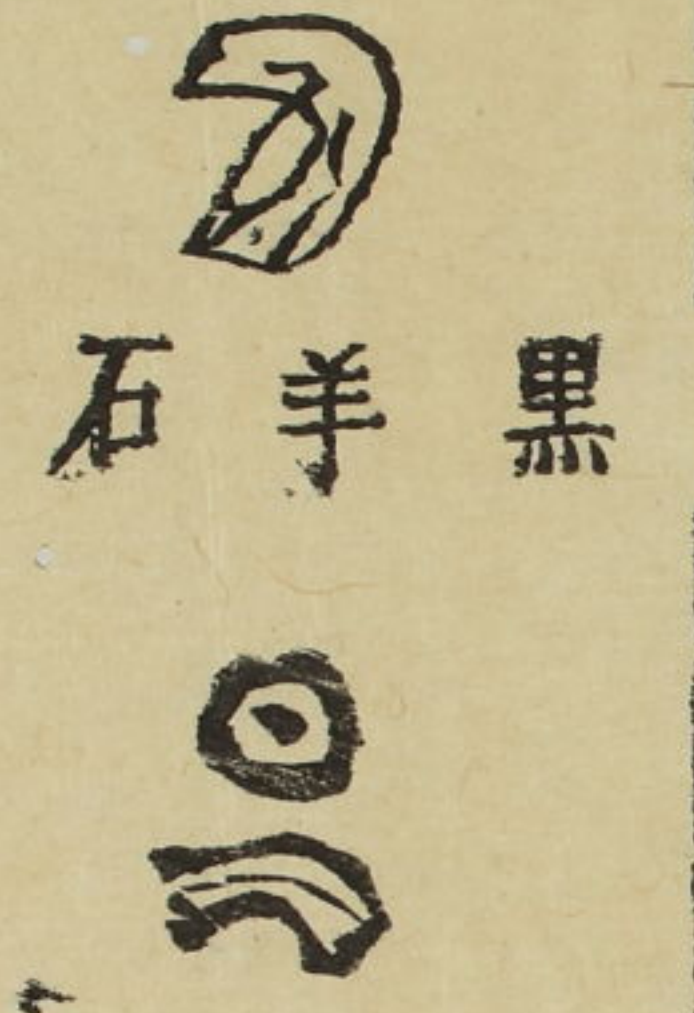 黑羊石